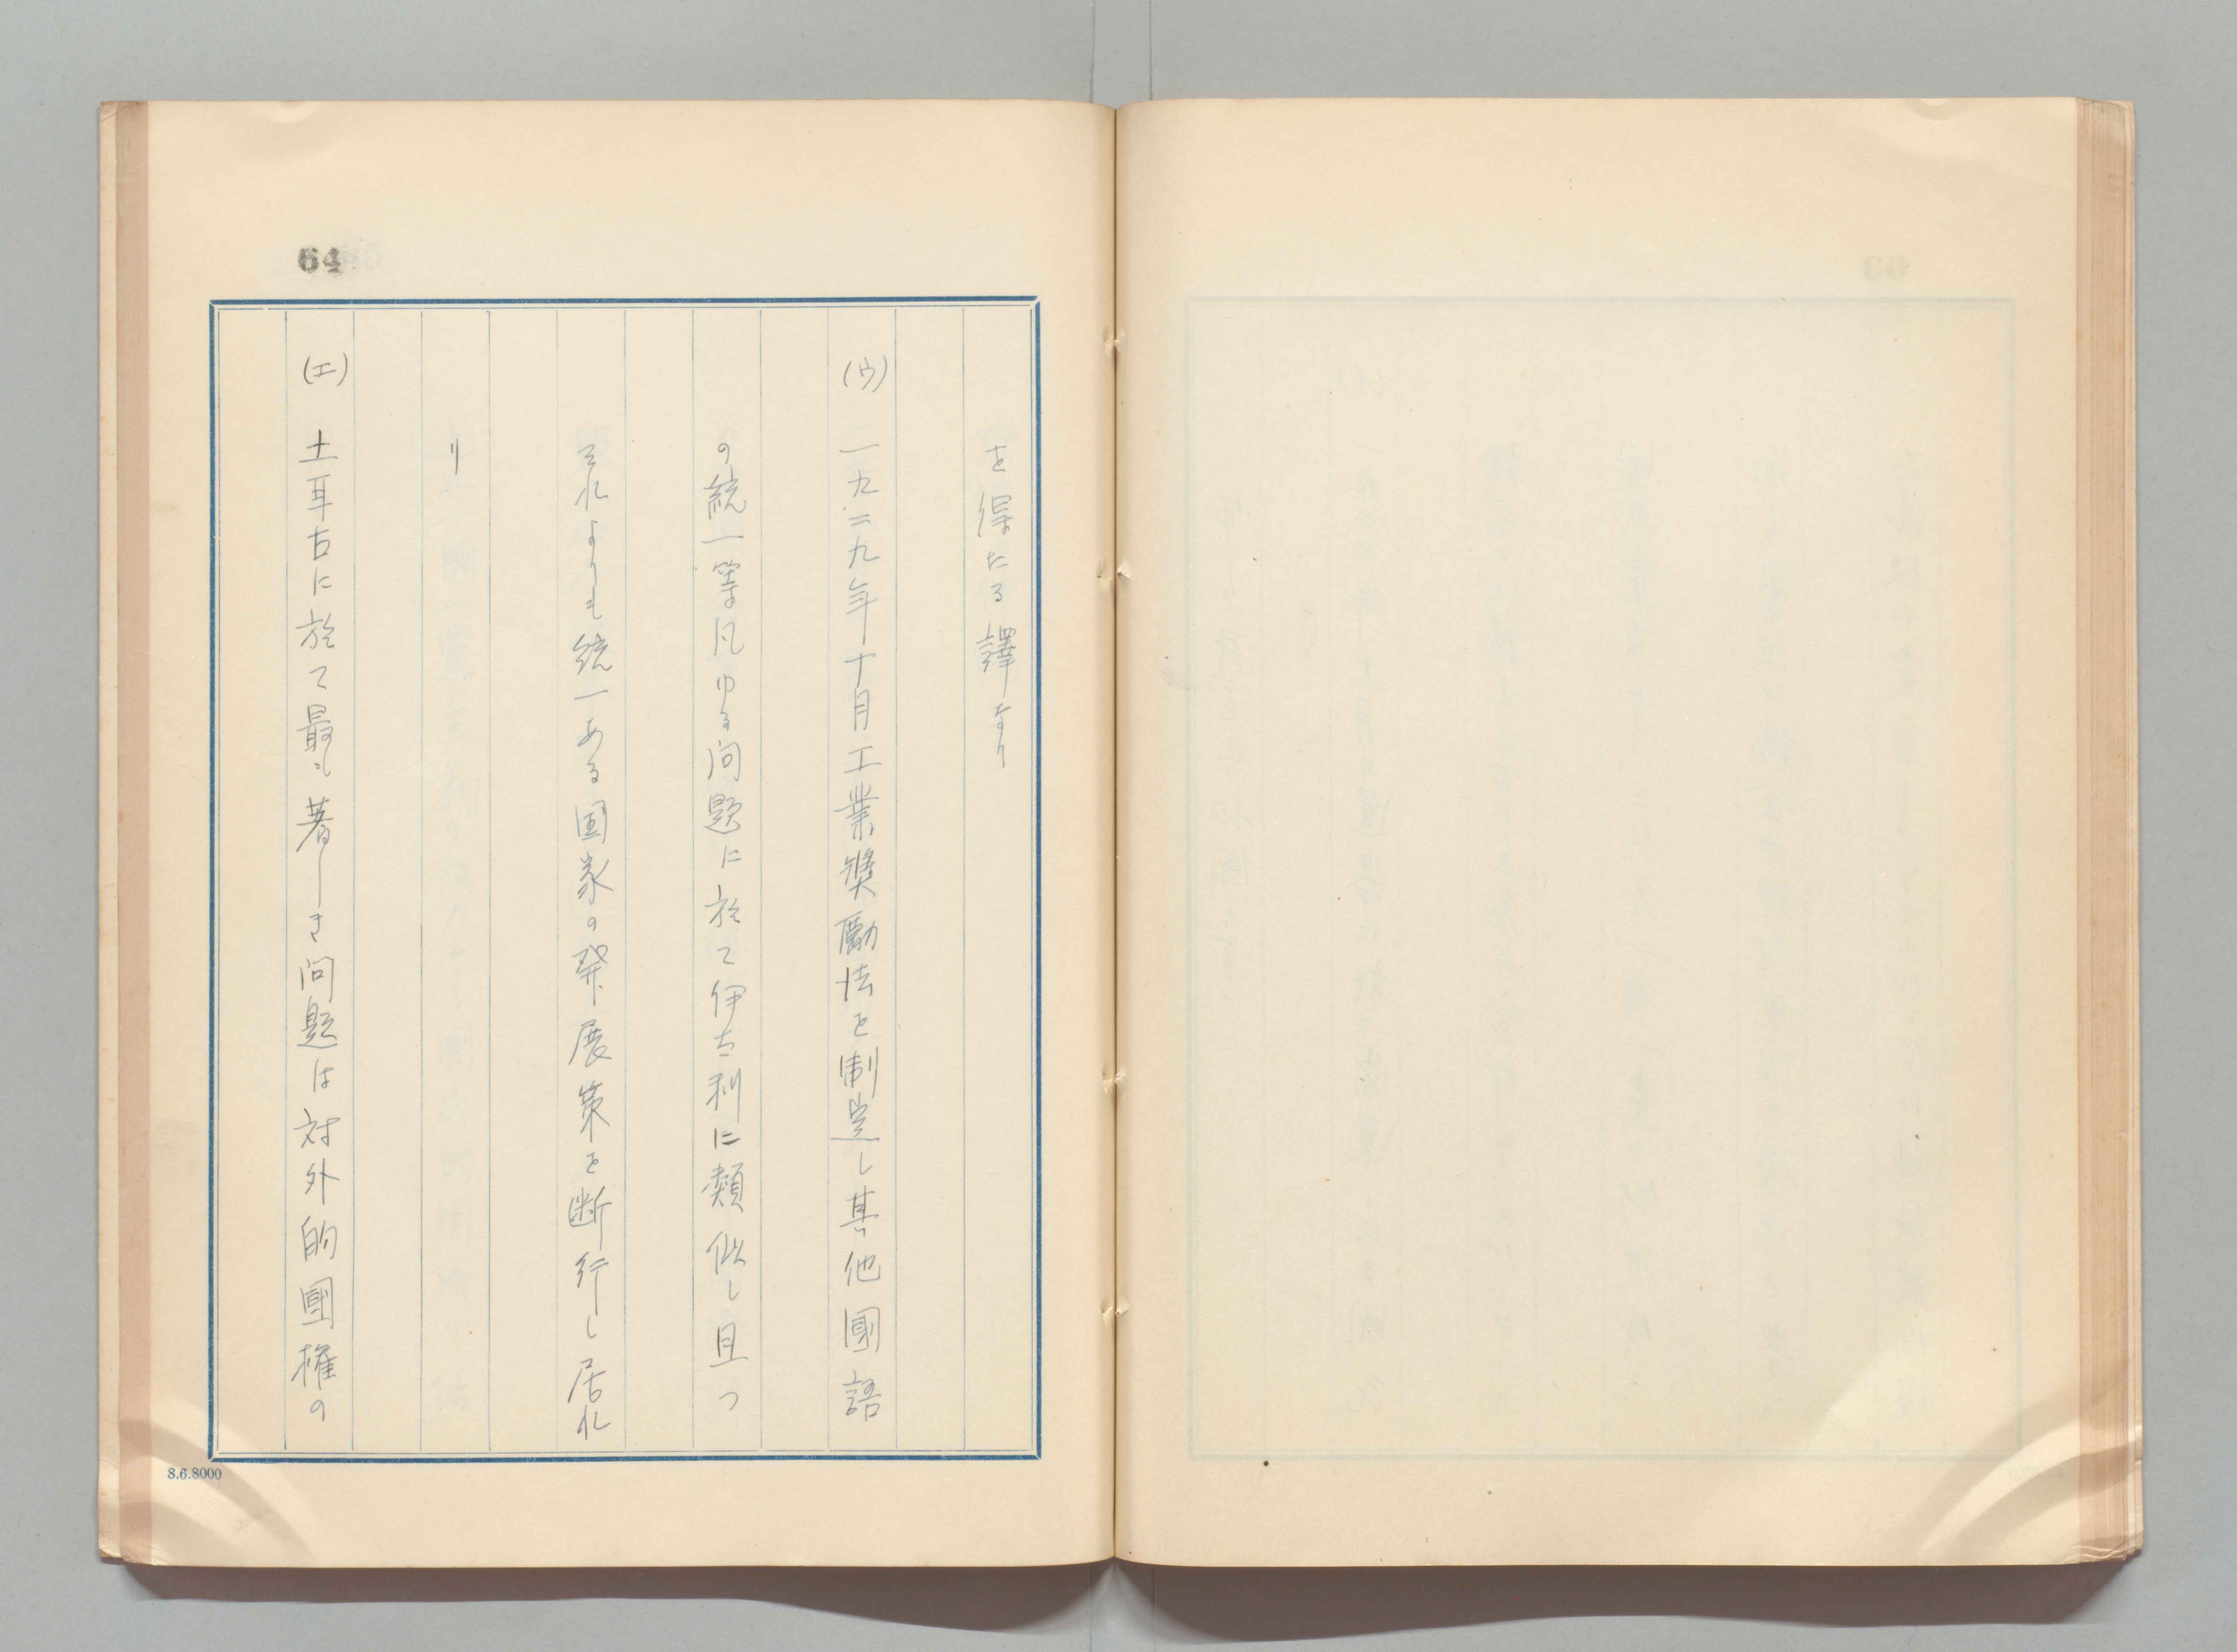 64
を得たる譯なり
(ウ) 一九二九年十月工業奬勵法を制定し其他國語
の統一等凡ゆる问題に於て伊太利に類似し且つ
それよりも統一ある国家の発展策を断行し居れ
り
(エ) 土耳古に於て最も著しき问題は対外的國権の
8.6.8000